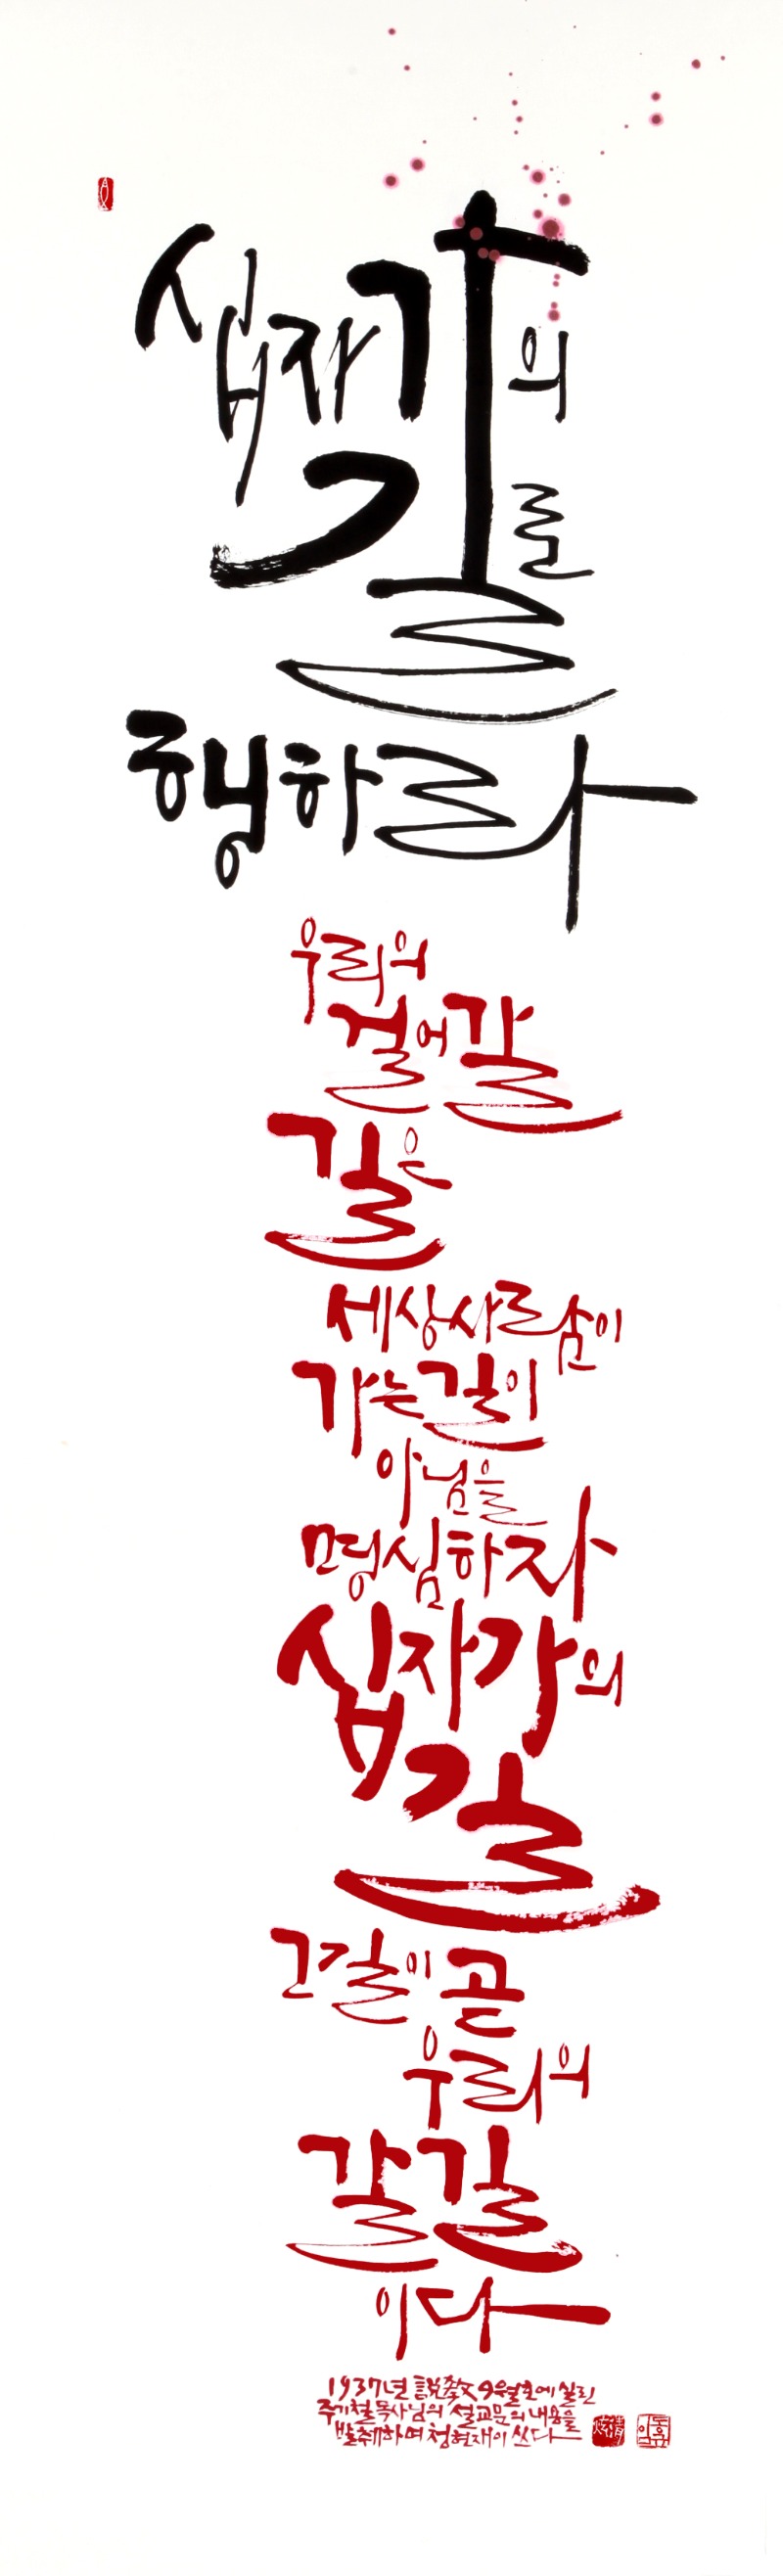 십자가의
길를
행하라
우리의
걸어갈
길은
세상사람이
가는길이
아님을
명심하자
십자가의
길
그길이 곧
우리의
갈길
이다
1937년 說敎文 9월호에 실린
주기철목사님의 설교문의 내용을
발췌하며 청현재이 쓰다